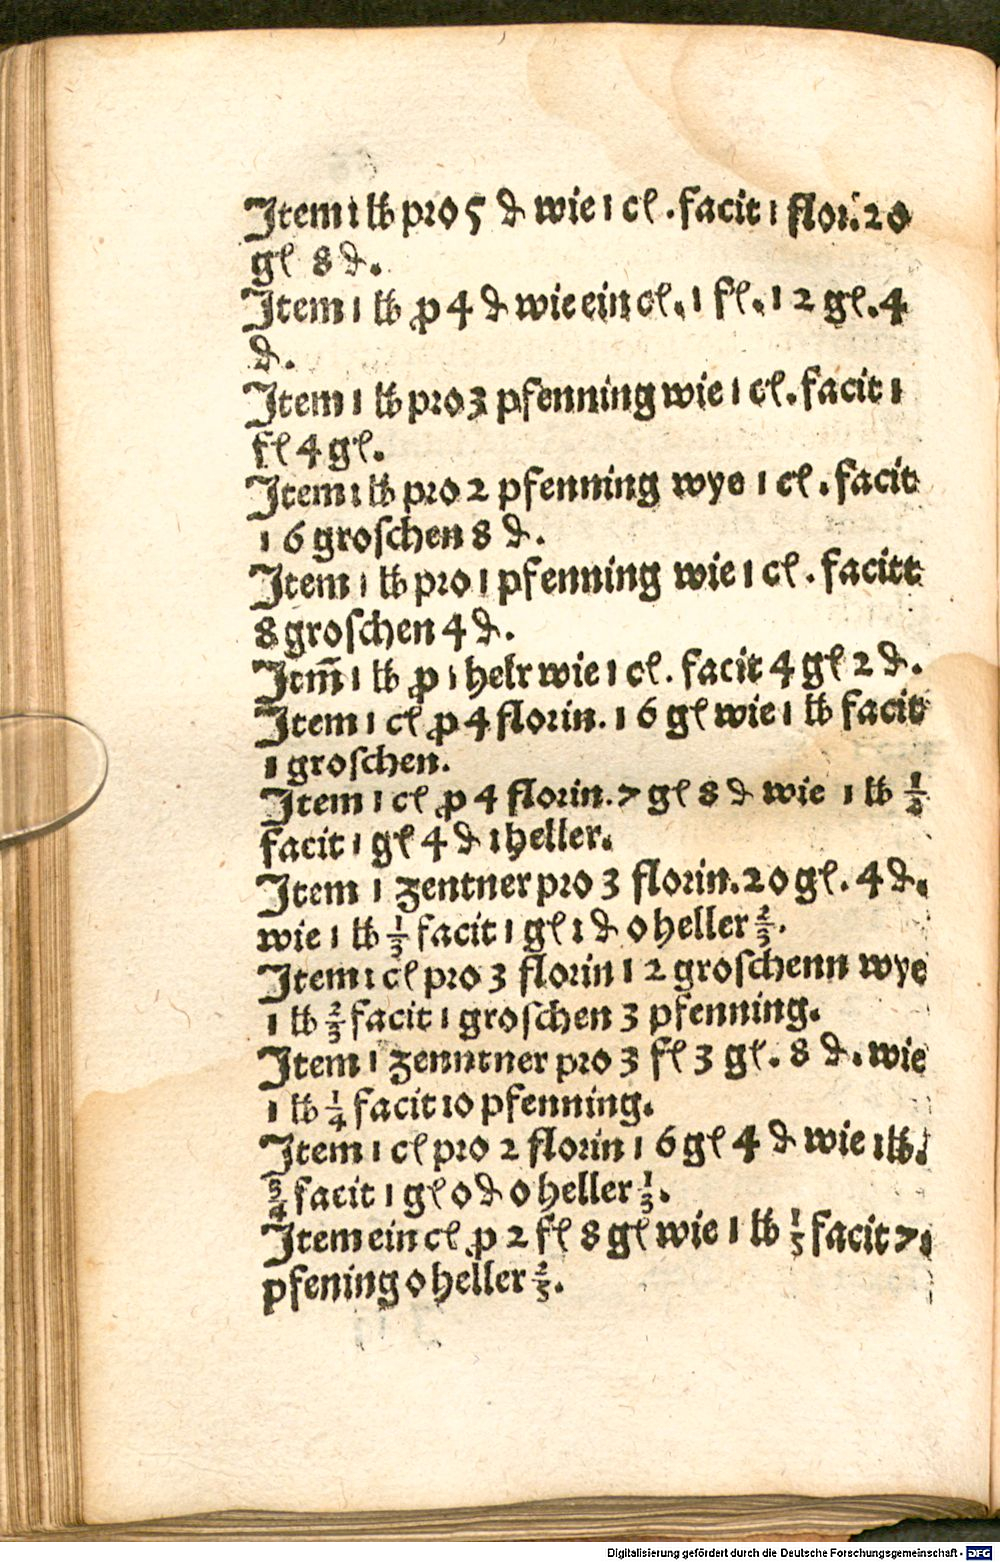 Item 1 lb pro 5 ₰ wie 1 cl. facit 1 flor. 20
gl 8 ₰.
Item 1 lb p̱ 4 ₰ wie ein cl. 1 fl. 12 gl. 4
₰.
Item 1 lb pro 3 pfenning wie 1 cl. facit 1
fl 4 gl.
Item 1 lb pro 2 pfenning wye 1 cl. facit
16 groſchen 8 ₰.
Item 1 lb pro 1 pfenning wie 1 cl. facitt
8 groſchen 4 ₰.
Itm̄ 1 lb p̱ 1 helr wie 1 cl. facit 4 gl 2 ₰.
Item 1 cl p̱ 4 florin. 16 gl wie 1 lb facit
1 groſchen.
Item 1 cl p̱ 4 florin. 7 gl 8 ₰ wie 1 lb ½
facit 1 gl 4 ₰ 1 heller.
Item 1 zentner pro 3 florin. 20 gl. 4 ₰.
wie 1 lb ⅓ facit 1 gl 1 ₰ 0 heller ⅔.
Item 1 cl pro 3 florin 12 groſchenn wye
1 lb ⅔ facit 1 groſchen 3 pfenning.
Item 1 zenntner pro 3 fl 3 gl. 8 ₰. wie
1 lb ¼ facit 10 pfenning.
Item 1 cl pro 2 florin 16 gl 4 ₰ wie 1 lb.
¾ facit 1 gl 0 ₰ 0 heller ⅓.
Item ein cl p̱ 2 fl 8 gl wie 1 lb ⅕ facit 7.
pfening 0 heller ⅖.
Digitalisierung gefördert durch die Deutsche Forschungsgemeinschaft - DFG